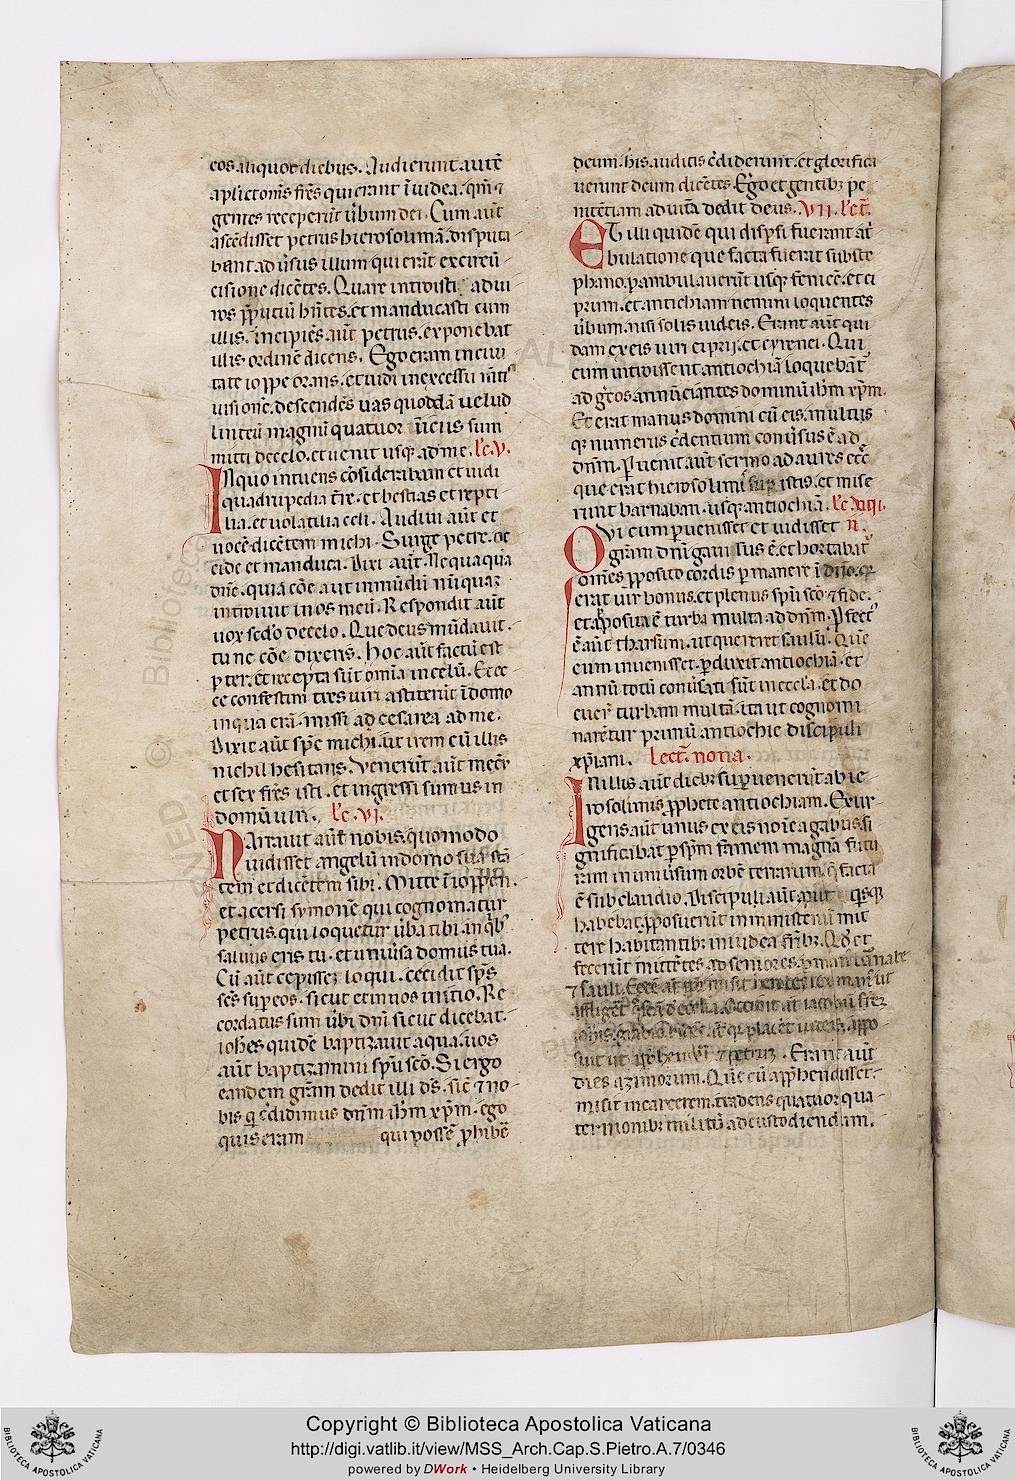 eos aliquot diebus. Audierunt autē
apli et om̄s frēs qui erant ī iudea. qm̄ ⁊
gentes receperūt ūbum dei. Cum aūt
ascēdisset petrus hierosolimā. disputa-
bant ad ūsus illum qui erāt ex circū-
cisione dicētes. Quare introisti ad vi-
ros p̄putiū hn̄tes. et manducasti cum
illis. incipiēs aūt petrus. exponebat
illis ordinē dicens. Ego eram in ciui
tate ioppe orans. et uidi in excessu mētis
uisionē. descendēs uas quoddā uelud
linteū magnū quatuor iniciis sum
mitti de celo. et uenit usq; ad me. lc̄. V.
In quo intuens cōsiderabam et uidi
quadrupedia tr̄e. et bestias et repti-
lia. et uolatilia celi. Audiui aūt et
uocē dicētem michi. Surge petre. oc
cide et manduca. Dixi aūt. Nequaqua
dn̄e. quia cōe aut inmūdū nūquaz
introiuit in os meū. Respondit aūt
uox sc̄do de celo. Que deus mūdauit.
tu ne cōe dixeris. Hoc aūt factū est
p ter. et recepta sūt omīa in celū. Et ec
ce confestim tres uiri astiterūt ī domo
in qua erā. missi ad cesarea ad me.
Dixit aūt sp̄c michi. ut irem cū illis
nichil hesitans. Venerūt aūt mecū
et sex frēs isti. et ingressi sumus in
domū uiri. lc̄. VI.
Narrauit aūt nobis. quomodo
uidisset angelū in domo sua stā
tem et dicētem sibi. Mitte ī ioppen.
et acersi symonē qui cognomatur
petrus. qui loquetur ūba tibi. in q̄bꝰ
saluus eris tu. et uniūsa domus tua.
Cū aūt cepissez loqui. cecidit sp̄s
sc̄s sup eos. sicut et in nos initio. Re
cordatus sum ūbi dn̄i sicut dicebat.
ioħes quidē baptizauit aqua. uos
aūt baptizamini spū scō. Si ergo
eandem grām dedit illi ds̄. sic̄ ⁊ no-
bis q̄ c̄didimus dn̄m iħm xp̄m. ego
quis eram qui possē p̄hibē
deum. his auditis c̄diderunt. et glorifica
uerunt deum dicētes Ego et gentibꝫ pe
nitētiam ad uitā dedit deus. VII. lc̄t.
Et illi quidē qui dispsi fuerant a tr̄i
bulatione que facta fuerat sub ste
phano. p̄ambulauerūt usq; fenicē. et ci
prum. et antiochiam nemini loquentes
ūbum. nisi solis iudeis. Erant aūt qui
dam ex eis uiri ciprij. et cyrenei. Qui
cum introissent antiochiā loquebāt
ad gr̄cos annūciantes dominū iħm xp̄m.
Et erat manus domini cū eis. multus
q; numerus c̄dentium conūsus ē ad
dn̄m. Puenit aūt sermo ad aures ecc̄e
que erat hierosolimī sup istis. et mise
runt barnaban. usq; antiochiā. lc̄. VIII.
Qui cum puenisset et uidisset
grām dn̄i gauisus ē. et hortabat
omēs p̄posito cordis pmanere ī dn̄o. q;
erat uir bonus. et plenus spū scō ⁊ fide.
et aposita ē turba multa ad dn̄m. P̄fectꝰ
ē aūt tharsum. ut quereret saulū. Quē
cum inuenisset. pduxit antiochiā. et
annū totū conūsati sūt in ecc̄la. et do
cuer̄ turbam multā. ita ut cognomi
narētur primū antiochie discipuli
xp̄iani. Lect̄. nona.
In illis aūt diebꝫ supuenerūt ab ie
rosolimis p̄phete antiochiam. Exur-
gens aūt unus ex eis noīe agabus. si
gnificabat p sp̄m famem magnā futu
ram in uniūsum orbē terrarum. q̄ facta
ē sub claudio. Discipuli aūt put q̄sq;
habebat. p̄posuerūt in ministeriū mit
tere habitantibꝫ in iudea fr̄ibꝫ. Qd̄ et
fecerūt mittētes ad seniores. p manꝰ barnabe
⁊ sauli.
Erant aūt
dies azimorum. Quē cū app̄hendisset.
misit in carcerem. tradens quatuor qua-
ternionibꝫ militū ad custodiendam.
Copyright © Biblioteca Apostolica Vaticana
http://digi.vatlib.it/view/MSS_Arch.Cap.S.Pietro.A.7/0346
powered by DWork • Heidelberg University Library